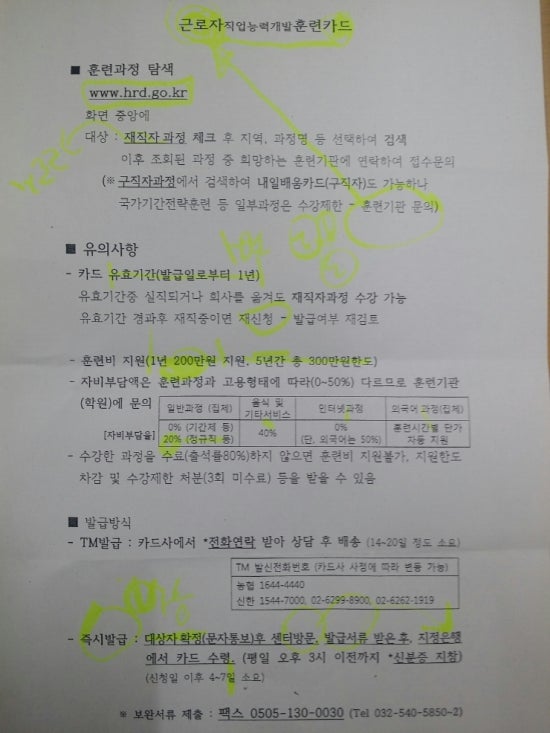 근로자직업능력개발훈련카드
■ 훈련과정 탐색
www.hrd.go.kr
화면 중앙에
대상 : 재직자과정 체크 후 지역, 과정명 등 선택하여 검색
이후 조회된 과정 중 희망하는 훈련기관에 연락하여 접수문의
(※ 구직자과정에서 검색하여 내일배움카드(구직자)도 가능하나
국가기간전략훈련 등 일부과정은 수강제한 - 훈련기관 문의)
■ 유의사항
- 카드 유효기간(발급일로부터 1년)
유효기간중 실직되거나 회사를 옮겨도 재직자과정 수강 가능
유효기간 경과후 재직중이면 재신청 - 발급여부 재검토
- 훈련비 지원(1년 200만원 지원, 5년간 총 300만원한도)
- 자비부담액은 훈련과정과 고용형태에 따라(0~50%) 다르므로 훈련기관
(학원)에 문의
일반과정 (집체) 음식 및 기타서비스 인터넷과정 외국어 과정(집체)
[자비부담율] 0% (기간제 등) 20% (정규직 등) 40% 0% (단, 외국어는 50%) 훈련시간별 단가 차등 지원
- 수강한 과정을 수료(출석률80%)하지 않으면 훈련비 지원불가, 지원한도
차감 및 수강제한 처분(3회 미수료) 등을 받을 수 있음
■ 발급방식
- TM발급 : 카드사에서 *전화연락 받아 상담 후 배송 (14~20일 정도 소요)
TM 발신전화번호 (카드사 사정에 따라 변동 가능)
농협 1644-4440
신한 1544-7000, 02-6299-8900, 02-6262-1919
- 즉시발급 : 대상자 확정(문자통보)후 센터방문, 발급서류 받은후, 지정은행
에서 카드 수령. (평일 오후 3시 이전까지 *신분증 지참)
(신청일 이후 4~7일 소요)
※ 보완서류 제출 : 팩스 0505-130-0030 (Tel 032-540-5850~2)